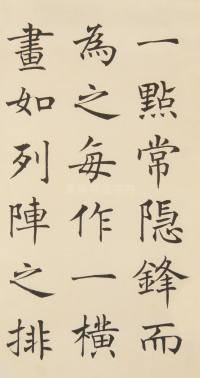 一點常隱鋒而
為之每作一橫
畫如列陣之排